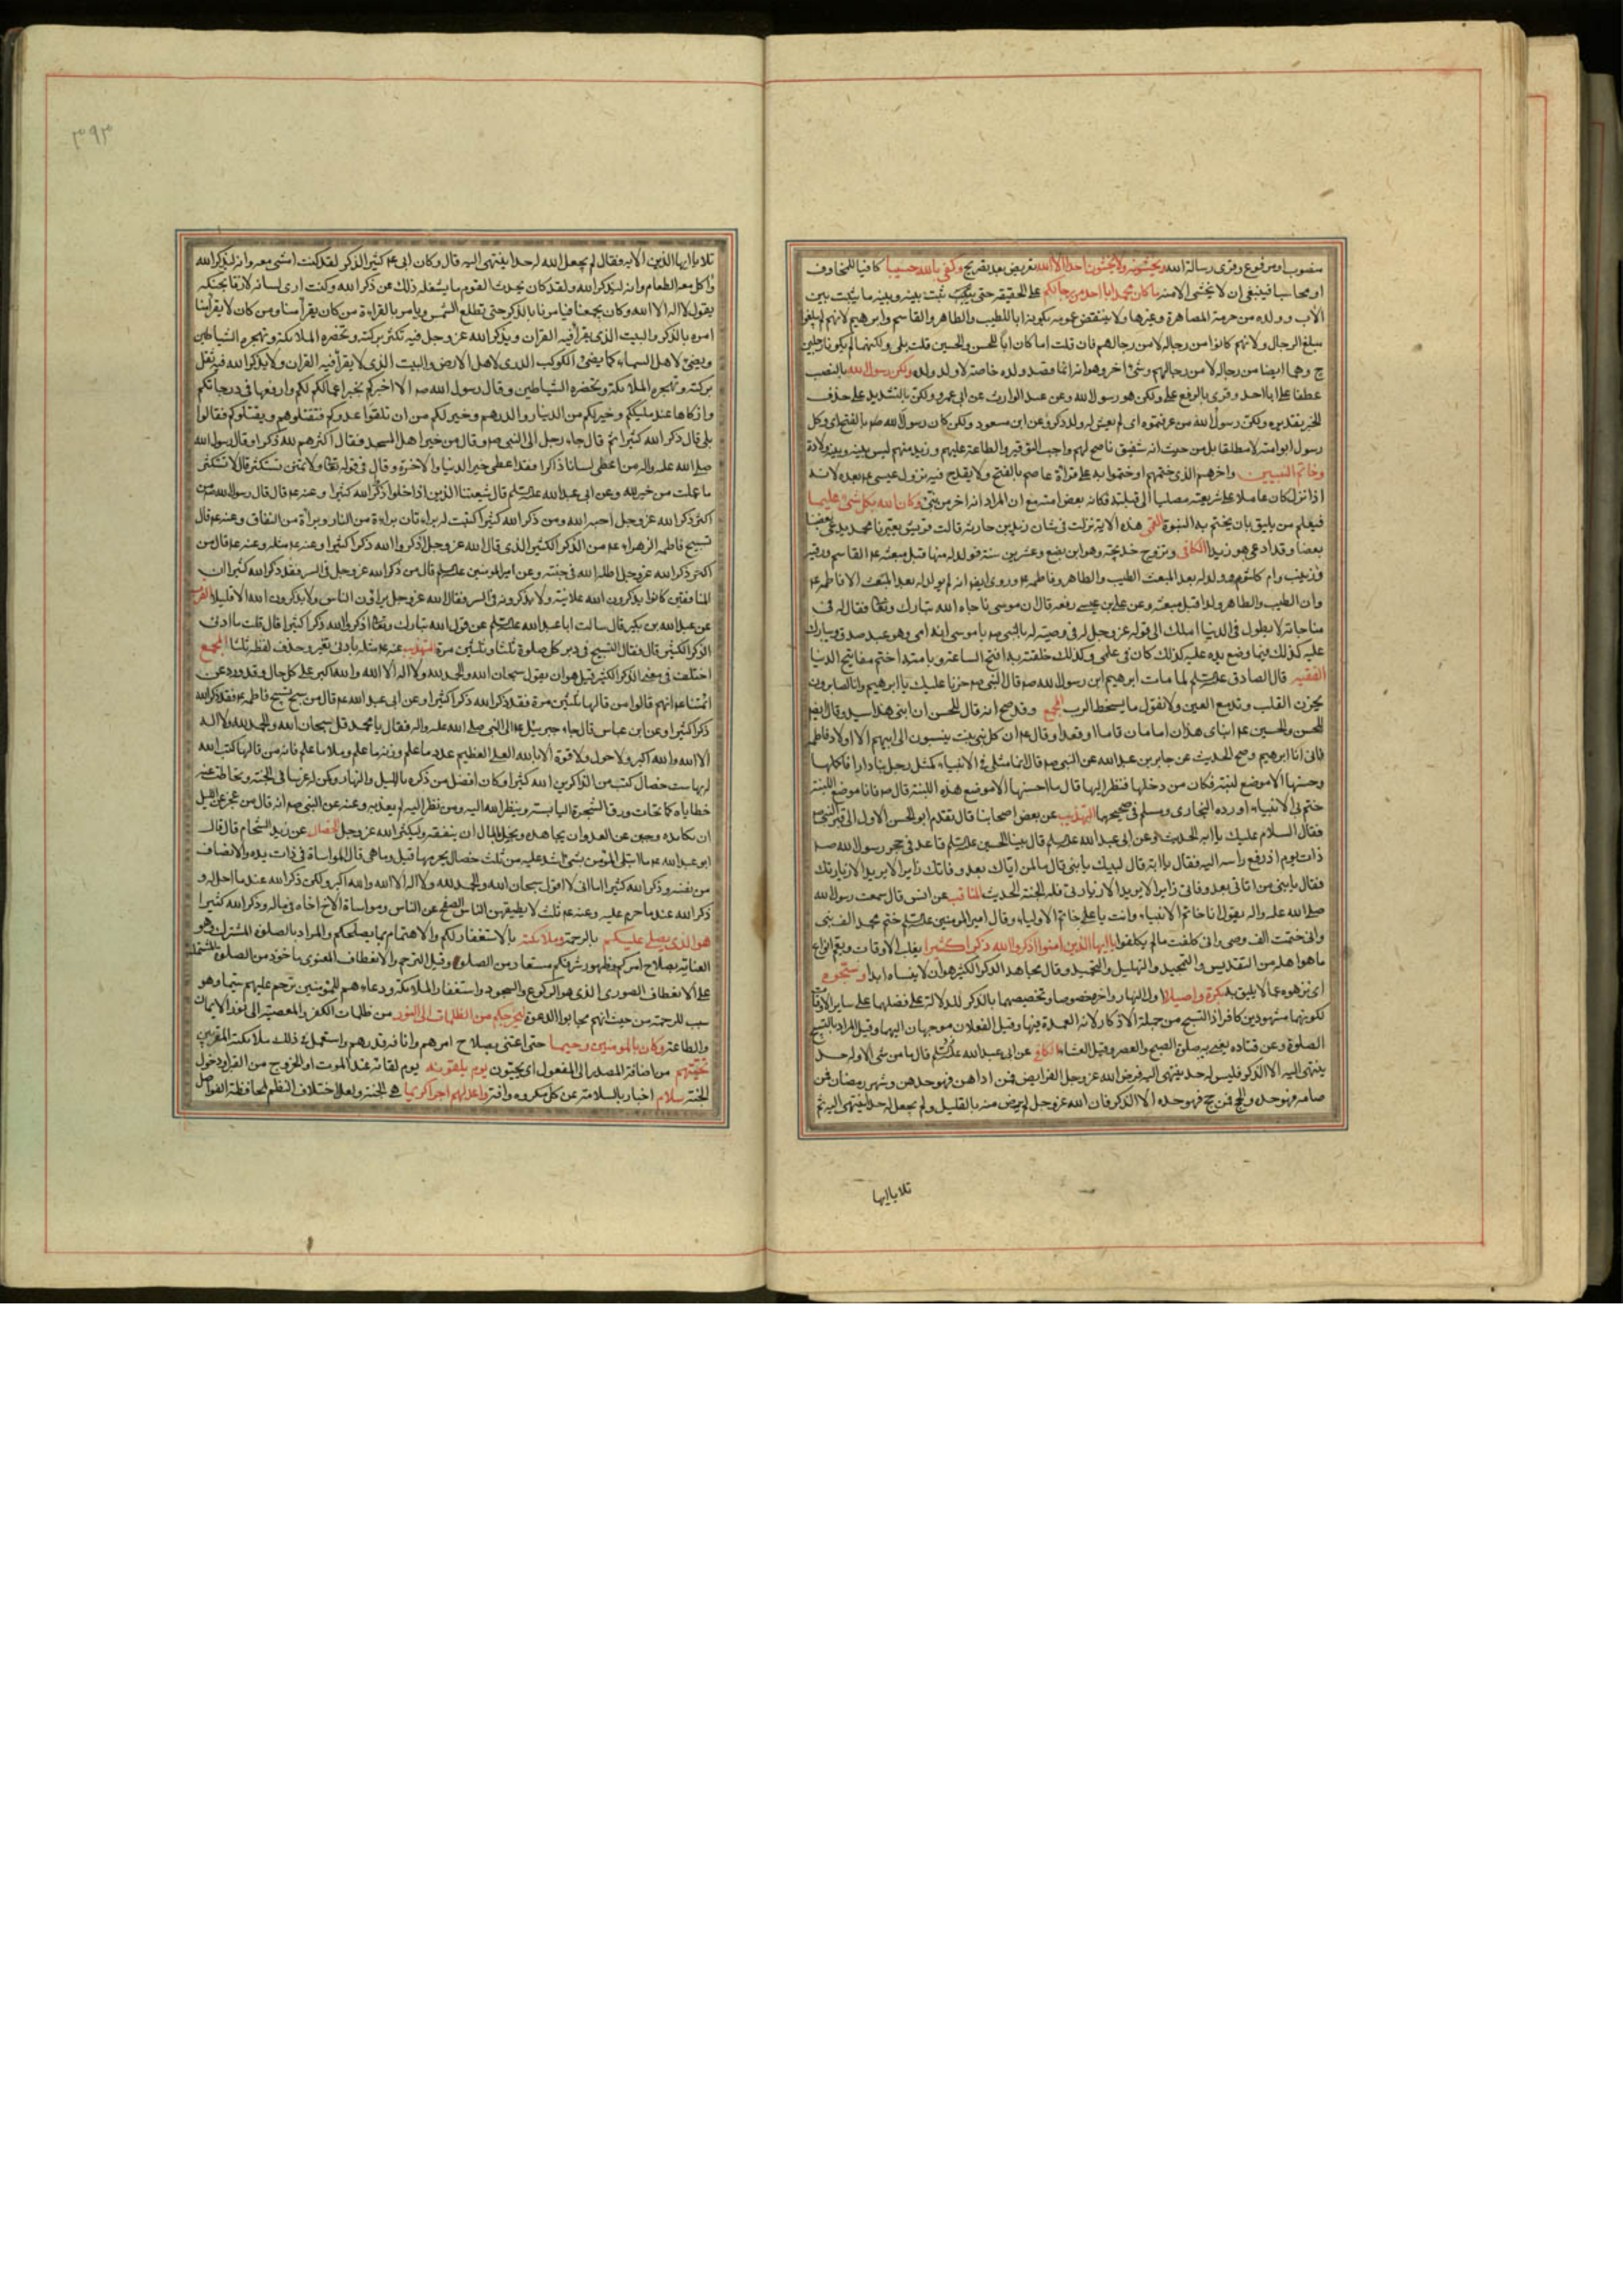 منصوب او مرفوع وقرئ رسالة الله ويخشونه ولا يخشون احدا الا الله تعريض بعد تصريح وكفى بالله حسيبا كافيا للمخاوف
او محاسبا فينبغى ان لا يخشى الا منه ما كان محمد ابا احد من رجالكم على الحقيقة حتى يثبت بينه وبينه ما يثبت بين
الاب وولده من حرمة المصاهرة وغيرها ولا ينتقض عمومه بكونه ابا للطيب والطاهر والقاسم وابرهيم لانهم لم يبلغوا
مبلغ الرجال ولانهم كانوا من رجاله لا من رجالهم فان قلت اما كان ابا للحسن والحسين قلت بلى ولكنهما لم يكونا رجلين
ح وهما ايضا من رجاله لا من رجالهم وشئ اخر وهو انه انما قصد ولده خاصة لا ولد ولده ولكن رسول الله بالنصب
عطفا على ابا احد وقرئ بالرفع على ولكن هو رسول الله وعن عبد الوارث عن ابى عمرو ولكن بالتشديد على حذف
الخبر تقديره ولكن رسول الله من عرفتموه اى لم يعش له ولد ذكر وعن ابن مسعود ولكن كان رسول الله وكل
رسول ابو امته لا مطلقا بل من حيث انه شفيق ناصح لهم واجب التوقير والطاعة عليهم وزيد منهم ليس بينه وبينه ولادة
وخاتم النبيين واخرهم الذى ختمهم او ختموا به على قراة عاصم بالفتح ولا يقدح فيه نزول عيسى ع بعده لانه
اذا نزل كان عاملا على شريعته مصليا الى قبلته فكانه بعض امته مع ان المراد انه اخر من نبئ وكان الله بكل شئ عليما
فيعلم من يليق بان يختم به النبوة القمى هذه الاية نزلت فى شان زيد بن حارثة قالت قريش يعيرنا محمد يدعى بعضنا
بعضا وقد ادعى هو زيدا الكافى وتزوج خديجة وهو ابن بضع وعشرين سنة فولد له منها قبل مبعثه ع القاسم ورقية
وزينب وام كلثوم وولد له بعد المبعث الطيب والطاهر وفاطمة ع وروى ايضا انه لم يولد له بعد المبعث الا فاطمة ع
وان الطيب والطاهر ولدا قبل مبعثه وعن على بن عيسى رفعه قال ان موسى ناجاه الله تبارك وتعالى فقال له فى
مناجاته لا يطول فى الدنيا املك الى قوله عز وجل له فى وصيته له بالنبى ص يا موسى انه امى وهو عبد صدق ويبارك
عليه كذلك فيما وضع يده عليه كذلك كان فى علمى وكذلك خلقته به افتح الساعة وبامته اختم مفاتيح الدنيا
الفقيه قال الصادق عليه السلم لما مات ابرهيم ابن رسول الله ص قال النبى ص حزنا عليك يا ابرهيم وانا لصابرون
يحزن القلب وتدمع العين ولا نقول ما يسخط الرب المجمع وقد صح انه قال للحسن ان ابنى هذا سيد وقال ايضا
للحسن والحسين ع ابناى هذان امامان قاما او قعدا وقال ع ان كل بنى بنت ينسبون الى ابيهم الا اولاد فاطمة
فانى انا ابوهم وصح الحديث عن جابر بن عبد الله عن النبى ص قال انما مثلى فى الانبياء كمثل رجل بنا دارا فاكملها
وحسنها الا موضع لبنة فكان من دخلها فنظر اليها قال ما احسنها الا موضع هذه اللبنة قال ص فانا موضع اللبنة
ختم بى الانبياء اورده البخارى ومسلم فى صحيحهما التهذيب عن بعض اصحابنا قال تقدم ابو الحسن الاول الى قبر النبى ص
فقال السلام عليك يا ابه الحديث وعن ابى عبد الله عليه السلم قال بينا الحسين عليه السلم قاعد فى حجر رسول الله ص
ذات يوم اذ رفع راسه اليه فقال يا ابة قال لبيك يا بنى قال ما لمن اتاك بعد وفاتك زايرا لا يريد الا زيارتك
فقال يا بنى من اتانى بعد وفاتى زايرا لا يريد الا زيارتى فله الجنة الحديث المناقب عن انس قال سمعت رسول الله
صلى الله عليه واله يقول انا خاتم الانبياء وانت يا على خاتم الاولياء وقال امير المومنين عليه السلم ختم محمد الف نبى
وانى ختمت الف وصى وانى كلفت ما لم يكلفوا يا ايها الذين امنوا اذكروا الله ذكرا كثيرا يغلب الاوقات ويعم انواع
ما هو اهله من التقديس والتمجيد والتهليل والتحميد وقال مجاهد الذكر الكثير هو ان لا ينساه ابدا وسبحوه
اى نزهوه عما لا يليق به بكرة واصيلا اول النهار واخره خصوصا وتخصيصهما بالذكر للدلالة على فضلهما على ساير الاوقات
لكونهما مشهودين كافراد التسبيح من جملة الاذكار لانه العمدة فيها وقيل الفعلان موجهان اليهما وقيل المراد بالتسبيح
الصلوة وعن قتاده يعنى به صلوة الصبح والعصر وقيل العشاء الكافى عن ابى عبد الله عليه السلم قال ما من شئ الا وله حد
ينتهى اليه الا الذكر فليس له حد ينتهى اليه فرض الله عز وجل الفرايض فمن اداهن فهو حدهن وشهر رمضان فمن
صامه فهو حده والحج فمن حج فهو حده الا الذكر فان الله عز وجل لم يرض منه بالقليل ولم يجعل له حدا ينتهى اليه ثم
تلا يا ايها
٣٩٣
تلا يا ايها الذين الاية وفقال لم يجعل الله له حدا ينتهى اليه قال وكان ابى ع كثير الذكر لقد كنت امشى معه وانه ليذكر الله
واكل معه الطعام وانه ليذكر الله ولقد كان يحدث القوم ما يشغله ذلك عن ذكر الله وكنت ارى لسانه لازقا بحنكه
يقول لا اله الا الله وكان يجمعنا فيامرنا بالذكر حتى تطلع الشمس ويامر بالقراءة من كان يقرأ منا ومن كان لا يقرأ منا
امره بالذكر والبيت الذى يقرأ فيه القران ويذكر الله عز وجل فيه تكثر بركته وتحضره الملائكة وتهجره الشياطين
ويضئ لاهل السماء كما يضئ الكوكب الدرى لاهل الارض والبيت الذى لا يقرأ فيه القران ولا يذكر الله فيه تقل
بركته وتهجره الملائكة وتحضره الشياطين وقال رسول الله ص الا اخبركم بخير اعمالكم لكم وارفعها فى درجاتكم
وازكاها عند مليككم وخير لكم من الدينار والدرهم وخير لكم من ان تلقوا عدوكم فتقتلوهم ويقتلوكم فقالوا
بلى قال ذكر الله كثيرا ثم قال جاء رجل الى النبى ص وقال من خير اهل المسجد فقال اكثرهم لله ذكرا وقال رسول الله
صلى الله عليه واله من اعطى لسانا ذاكرا فقد اعطى خير الدنيا والاخرة وقال فى قوله تعالى ولا تمنن تستكثر قال لا تستكثر
ما عملت من خير لله وعن ابى عبد الله عليه السلم قال شيعتنا الذين اذا خلوا ذكروا الله كثيرا وعنه ع قال قال رسول الله ص من
اكثر ذكر الله عز وجل احبه الله ومن ذكر الله كثيرا كتبت له براءتان براءة من النار وبراءة من النفاق وعنه ع قال
تسبيح فاطمة الزهراء ع من الذكر الكثير الذى قال الله عز وجل اذكروا الله ذكرا كثيرا وعنه ع مثله وعنه ع قال من
اكثر ذكر الله عز وجل اظله الله فى جنته وعن امير المومنين عليه السلم قال من ذكر الله عز وجل فى السر فقد ذكر الله كثيرا ان
المنافقين كانوا يذكرون الله علانية ولا يذكرونه فى السر فقال الله عز وجل يراؤن الناس ولا يذكرون الله الا قليلا
عن عبد الله بن بكير قال سالت ابا عبد الله عليه السلم عن قول الله تبارك وتعالى اذكروا الله ذكرا كثيرا قال قلت ما ادنى
الذكر الكثير قال فقال التسبيح فى دبر كل صلوة ثلثا وثلثين مرة التهذيب عنه ع مثله بادنى تغير وحذف لفظة ثلثا المجمع
اختلف فى معنى الذكر الكثير قيل هو ان يقول سبحان الله والحمد لله ولا اله الا الله والله اكبر على كل حال وقد ورد عن
ائمتنا ع انهم قالوا من قالها ثلثين مرة فقد ذكر الله ذكرا كثيرا وعن ابى عبد الله ع قال من سبح تسبيح فاطمة ع فقد ذكر الله
ذكرا كثيرا وعن ابن عباس قال جاء جبرئيل ع الى النبى صلى الله عليه واله فقال يا محمد قل سبحان الله والحمد لله ولا اله
الا الله والله اكبر ولا حول ولا قوة الا بالله العلى العظيم عدد ما علم وزنة ما علم وملأ ما علم فانه من قالها كتب الله
له بها ست خصال كتب من الذاكرين الله كثيرا وكان افضل من ذكره بالليل والنهار وكن له غرسا فى الجنة وتحاتت عنه
خطاياه كما تحات ورق الشجرة اليابسة وينظر الله اليه ومن نظر اليه لم يعذبه وعنه عن النبى ص انه قال من عجز عن الليل
ان يكابده وجبن عن العدو ان يجاهده وبخل بالمال ان ينفقه فليكثر ذكر الله عز وجل الخصال عن زيد الشحام قال قال
ابو عبد الله ع ما ابتلى المؤمن بشئ اشد عليه من ثلث خصال يحرمها قيل وما هى قال المواساة فى ذات يده والانصاف
من نفسه وذكر الله كثيرا اما انى لا اقول سبحان الله والحمد لله ولا اله الا الله والله اكبر ولكن ذكر الله عند ما احل له و
ذكر الله عند ما حرم عليه وعنه ع ثلث لا يطيقهن الناس الصفح عن الناس ومواساة الاخ اخاه فى ماله وذكر الله كثيرا
هو الذى يصلى عليكم بالرحمة وملائكته بالاستغفار لكم والاهتمام بما يصلحكم والمراد بالصلوة المشترك وهو
العناية بصلاح امركم وظهور شرفكم مستعار من الصلو وقيل الترحم والانعطاف المعنوى ماخوذ من الصلوة المشتملة
على الانعطاف الصورى الذى هو الركوع والسجود واستغفار الملائكة ودعاءهم للمؤمنين ترحم عليهم سيما وهو
سبب للرحمة من حيث انهم مجابوا الدعوة ليخرجكم من الظلمات الى النور من ظلمات الكفر والمعصية الى نور الايمان
والطاعة وكان بالمومنين رحيما حتى اعتنى بصلاح امرهم وانافة قدرهم واستعمل فى ذلك ملائكته المقربين
تحيتهم من اضافة المصدر الى المفعول اى يحيون يوم يلقونه يوم لقائه عند الموت او الخروج من القبر او دخول
الجنة سلام اخبار بالسلامة عن كل مكروه وافة واعد لهم اجرا كريما هى الجنة ولعل اختلاف النظم لمحافظة الفواصل